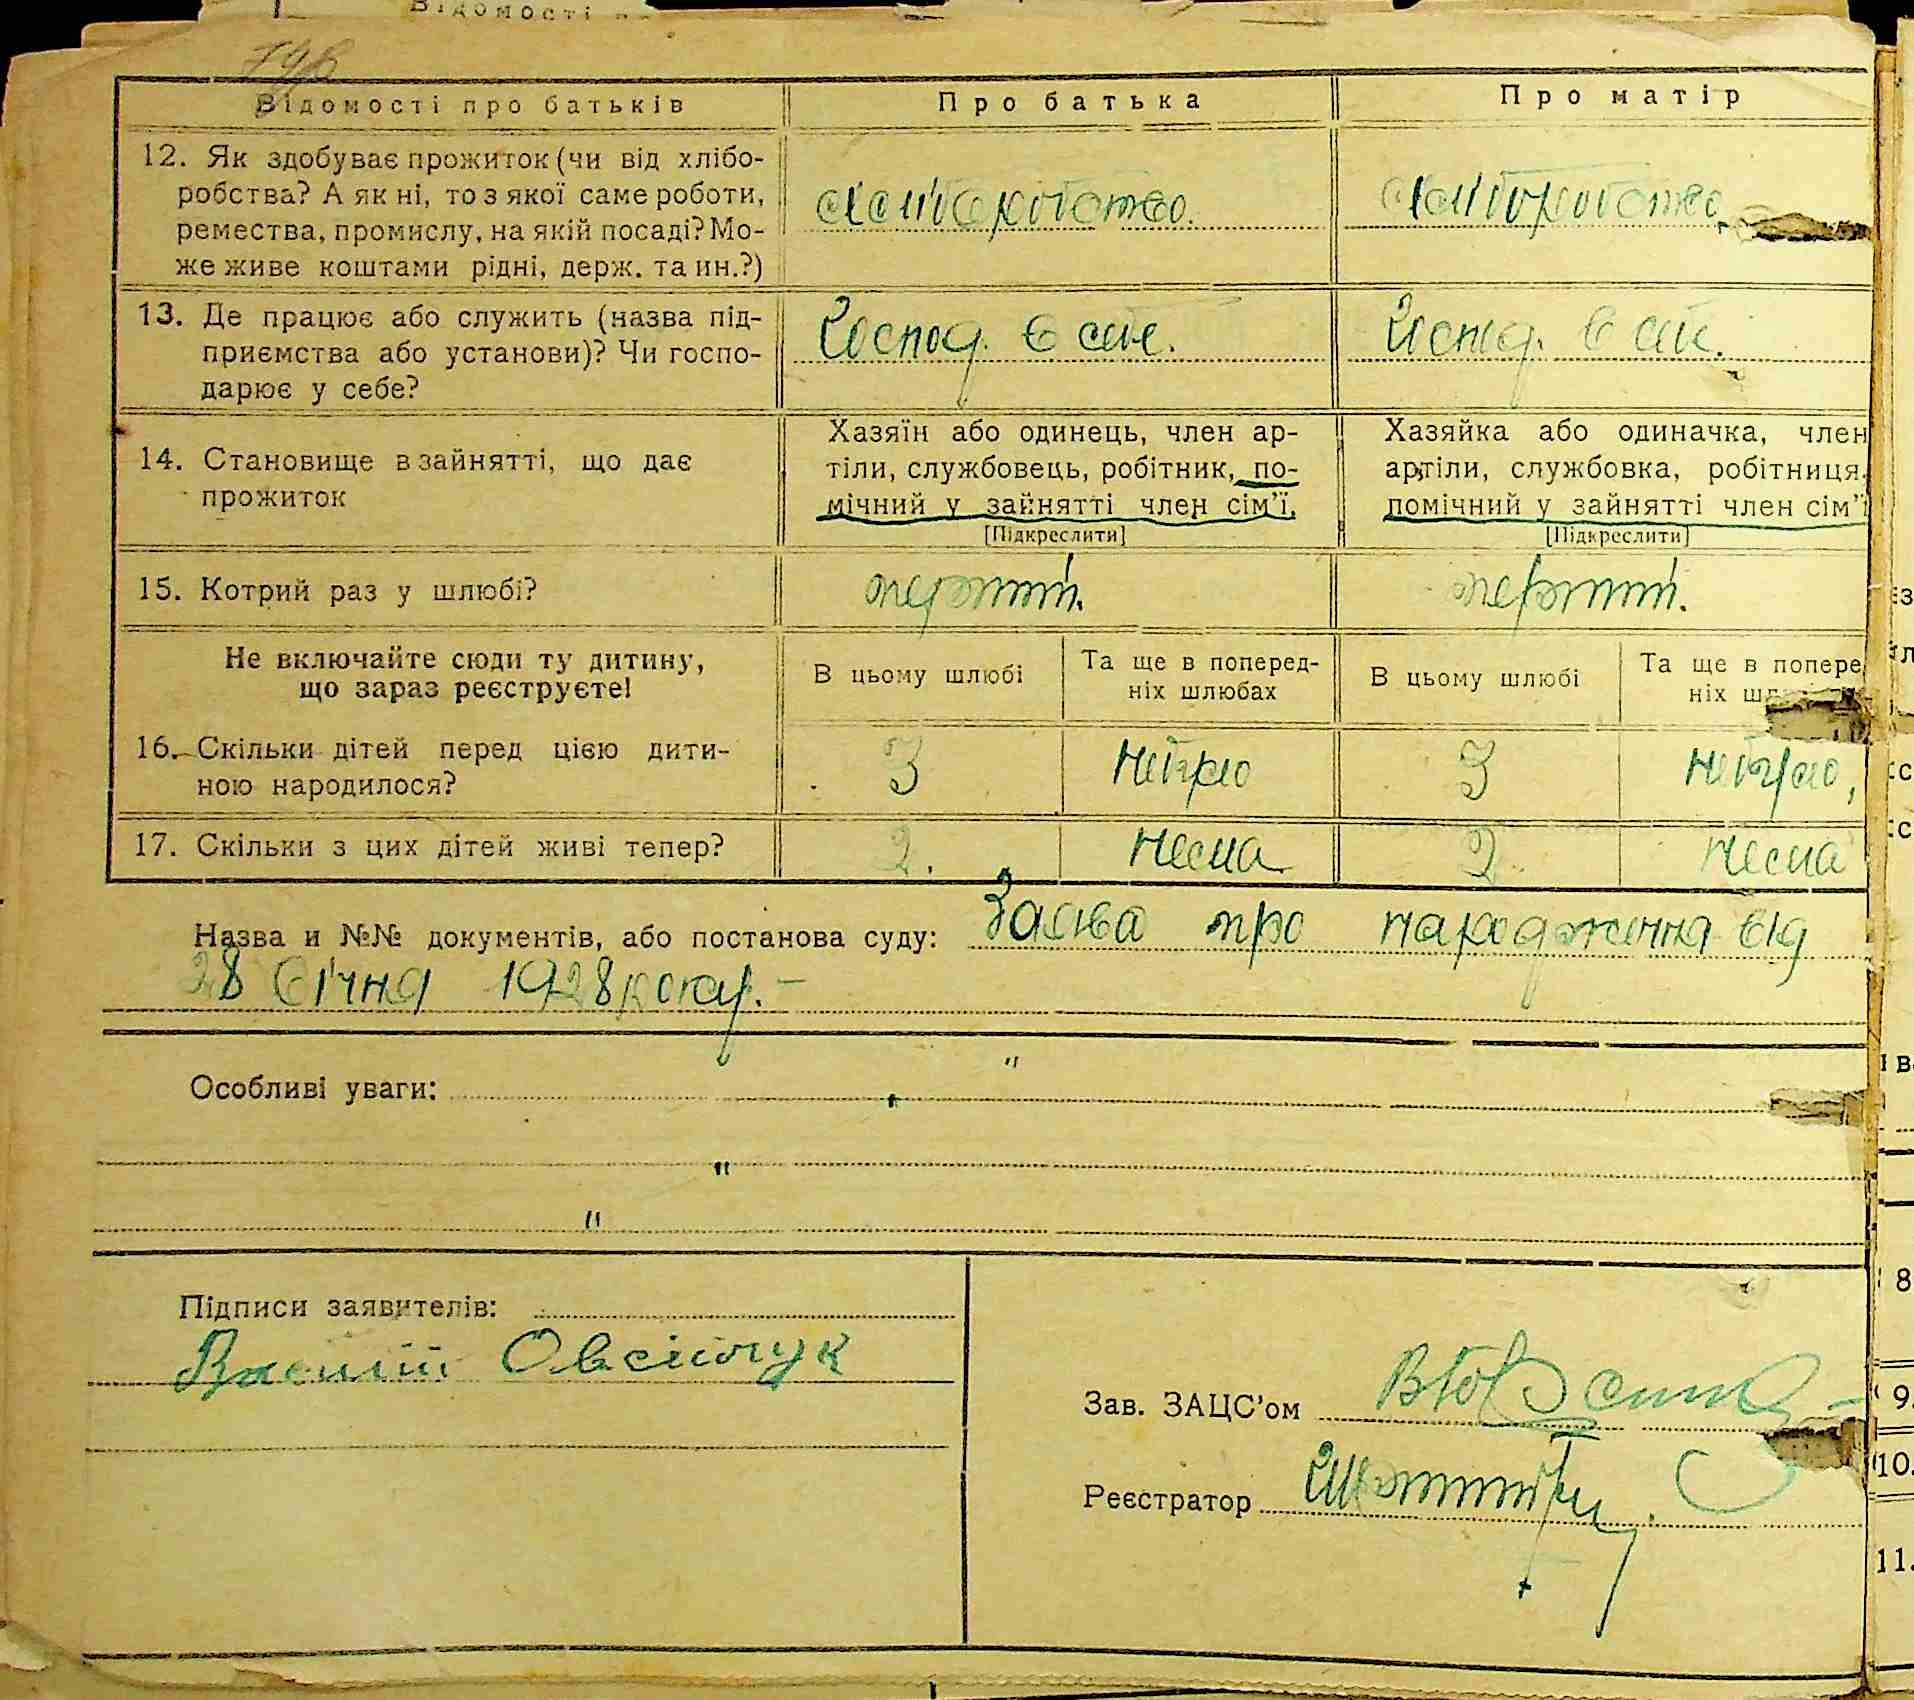 Відомості
79в
Відомості про батьків
Про батька
Про матір
12. Як здобуває прожиток (чи від хлібо-
робства? А як ні, то з якої саме роботи,
ремества, промислу, на якій посаді? Мо-
же живе коштами рідні, держ. та ин.?)
хліборобство.
хліборобство
13. Де працює або служить (назва під-
приємства або установи)? Чи госпо-
дарює у себе?
Господ. в сім.
Господ. в сім.
14. Становище в зайнятті, що дає
прожиток
Хазяїн або одинець, член ар-
тіли, службовець, робітник, по-
мічний у зайнятті член сім'ї.
[Підкреслити]
Хазяйка або одиначка, член
артіли, службовка, робітниця,
помічний у зайнятті член сім'ї
[Підкреслити]
15. Котрий раз у шлюбі?
перший.
перший.
Не включайте сюди ту дитину,
що зараз реєструєте!
В цьому шлюбі
Та ще в поперед-
ніх шлюбах
В цьому шлюбі
Та ще в попере
ніх шл
16. Скільки дітей перед цією дити-
ною народилося?
3
небуло
3
небуло,
17. Скільки з цих дітей живі тепер?
2.
нема
2
нема
Назва и №№ документів, або постанова суду: Заява про народження від
28 січня 1928 року.-
Особливі уваги: "
"
"
Підписи заявителів:
Василій Овсійчук
Зав. ЗАЦС'ом
Реєстратор
8
9.
10.
11.